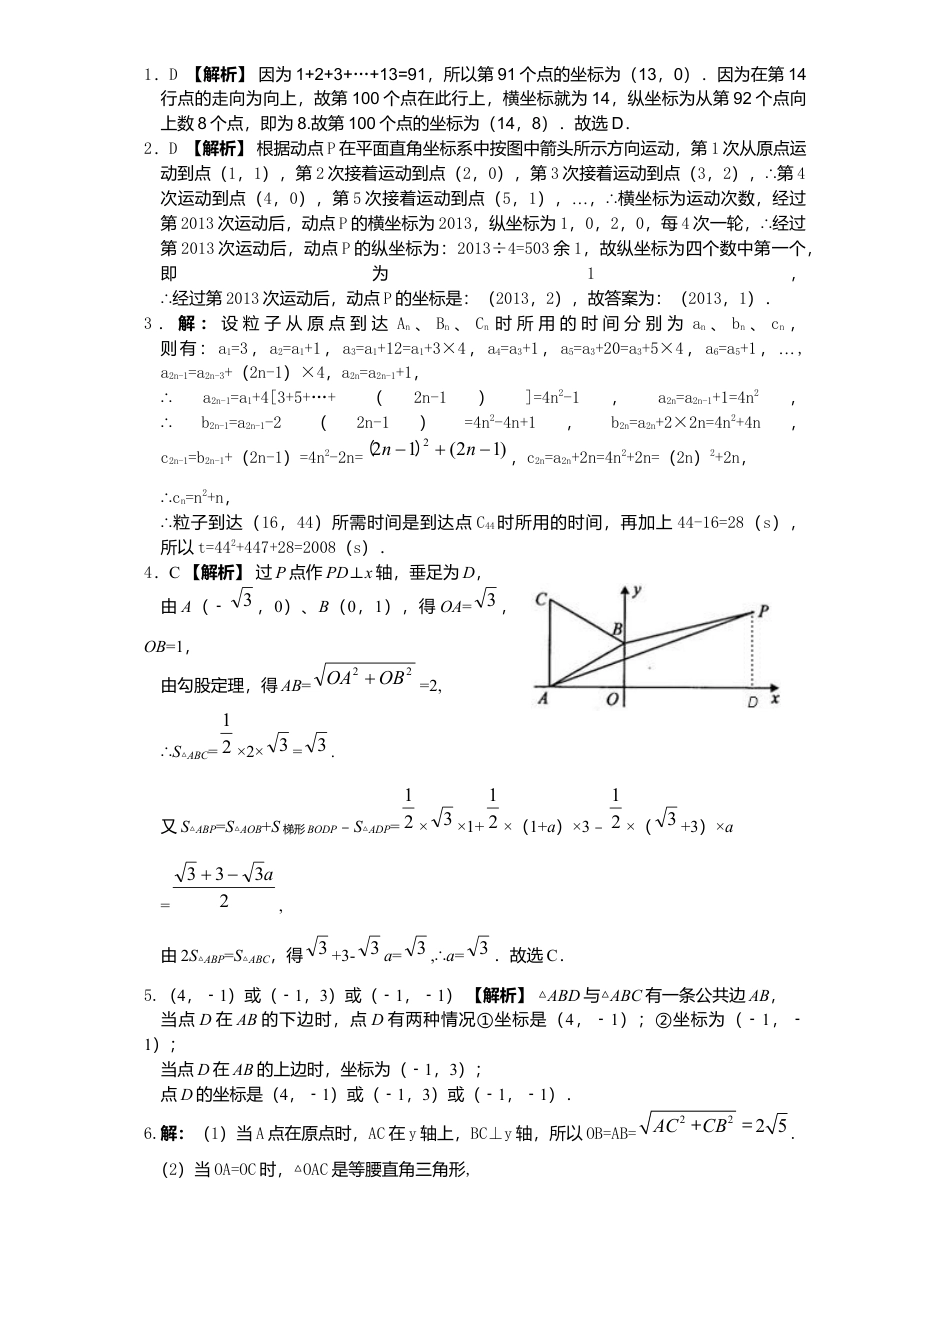 1．D 【解析】 因为 1+2+3+…+13=91，所以第 91 个点的坐标为（13，0）．因为在第 14
行点的走向为向上，故第 100 个点在此行上，横坐标就为 14，纵坐标为从第 92 个点向
上数 8 个点，即为 8.故第 100 个点的坐标为（14，8）．故选 D．
2．D 【解析】 根据动点 P 在平面直角坐标系中按图中箭头所示方向运动，第 1 次从原点运
动到点（1，1），第 2 次接着运动到点（2，0），第 3 次接着运动到点（3，2），∴第 4
次运动到点（4，0），第 5 次接着运动到点（5，1），…，∴横坐标为运动次数，经过
第 2013 次运动后，动点 P 的横坐标为 2013，纵坐标为 1，0，2，0，每 4 次一轮，∴经过
第 2013 次运动后，动点 P 的纵坐标为：2013÷4=503 余 1，故纵坐标为四个数中第一个，
即 为 1 ，
∴经过第 2013 次运动后，动点 P 的坐标是：（2013，2），故答案为：（2013，1）．
3 ．解 ：设 粒 子 从 原 点 到 达 Aₙ 、 Bₙ 、 Cₙ 时 所 用 的 时 间 分 别 为 aₙ 、 bₙ 、 cₙ ，
则有：a₁=3，a₂=a₁+1，a₃=a₁+12=a₁+3×4，a₄=a₃+1，a₅=a₃+20=a₃+5×4，a₆=a₅+1，…，
a₂ₙ₋₁=a₂ₙ₋₃+（2n-1）×4，a₂ₙ=a₂ₙ₋₁+1，
∴ a₂ₙ₋₁=a₁+4[3+5+…+ （ 2n-1 ） ]=4n²-1 ， a₂ₙ=a₂ₙ₋₁+1=4n² ，
∴ b₂ₙ₋₁=a₂ₙ₋₁-2 （ 2n-1 ） =4n²-4n+1 ， b₂ₙ=a₂ₙ+2×2n=4n²+4n ，
c₂ₙ₋₁=b₂ₙ₋₁+（2n-1）=4n²-2n=(2n−1)²+(2n−1)，c₂ₙ=a₂ₙ+2n=4n²+2n=（2n）²+2n，
∴cₙ=n²+n，
∴粒子到达（16，44）所需时间是到达点 C₄₄ 时所用的时间，再加上 44-16=28（s），
所以 t=44²+447+28=2008（s）．
4．C 【解析】 过 P 点作 PD⊥x 轴，垂足为 D，
由 A（﹣√3，0）、B（0，1），得 OA=√3，
OB=1，
由勾股定理，得 AB=√(OA²+OB²)=2，
∴S△ABC=1/2×2×√3=√3．
又 S△ABP=S△AOB+S梯形 BODP﹣S△ADP=1/2×√3×1+1/2×（1+a）×3﹣1/2×（√3+3）×a
=(√3+3−√3a)/2，
由 2S△ABP=S△ABC，得√3+3-√3a=√3,∴a=√3．故选 C．
C
y
B
P
A
O
D
x
5.（4，﹣1）或（﹣1，3）或（﹣1，﹣1） 【解析】 △ABD 与△ABC 有一条公共边 AB，
当点 D 在 AB 的下边时，点 D 有两种情况①坐标是（4，﹣1）；②坐标为（﹣1，﹣
1）；
当点 D 在 AB 的上边时，坐标为（﹣1，3）；
点 D 的坐标是（4，﹣1）或（﹣1，3）或（﹣1，﹣1）．
6.解：（1）当 A 点在原点时，AC 在 y 轴上，BC⊥y 轴，所以 OB=AB=√(AC²+CB²)=2√5．
（2）当 OA=OC 时，△OAC 是等腰直角三角形，